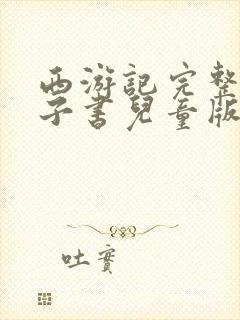 西游記完整
子書兒童版
吐實